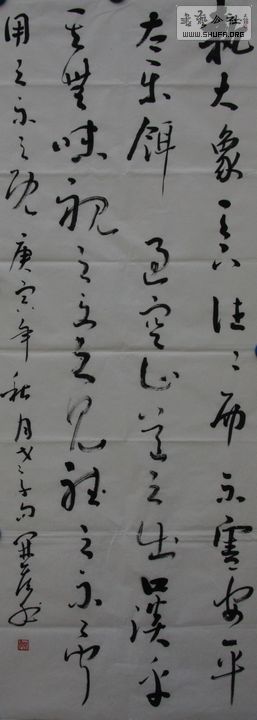 執大象天下往往而不害安平
太樂餌過客止道之出口淡乎
其無味視之不足見聽之不足聞
用之不足既庚寅年秋月老子句
書法公社
WWW.SHUFA.ORG